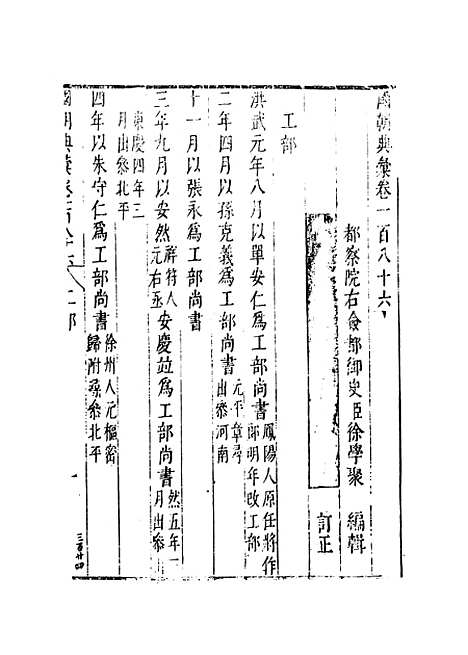 國朝典彙卷一百八十六
都察院右僉都御史臣徐學聚 編輯
訂正
工部
洪武元年八月以單安仁爲工部尚書鳳陽人原任將作
郎明年改工部
元平章尋
二年四月以孫克義爲工部尚書出參河南
十一月以張永爲工部尚書
三年九月以安然祥符人元右丞安慶竝爲工部尚書然五年一
月出參
東慶四年三
月出參北平
四年以朱守仁爲工部尚書徐州人元樞密
歸附尋參北平
國朝典彙卷一百八十六 工部 一
三百廿四